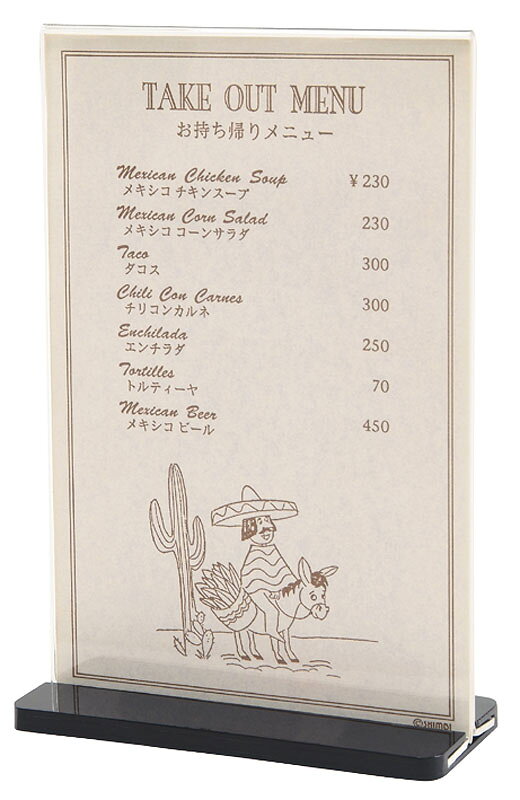 TAKE OUT MENU
お持ち帰りメニュー
Mexican Chicken Soup ¥230
メキシコ チキンスープ
Mexican Corn Salad 230
メキシコ コーンサラダ
Taco 300
タコス
Chili Con Carnes 300
チリコンカルネ
Enchilada 250
エンチラダ
Tortilles 70
トルティーヤ
Mexican Beer 450
メキシコ ビール
©SHIMBI